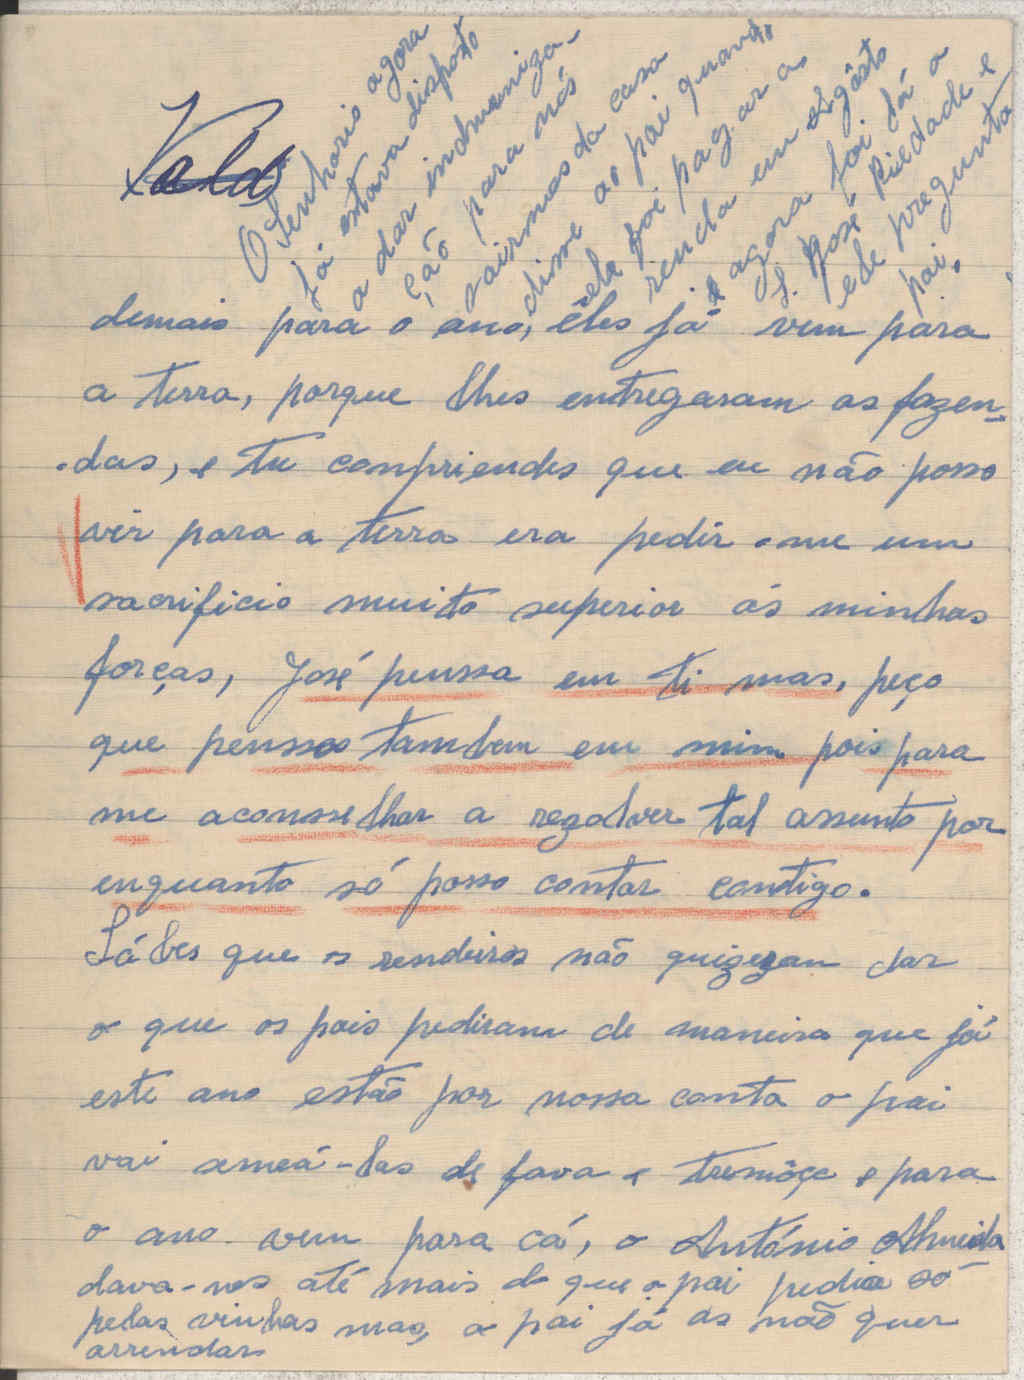 O Senhorio agora
já estava disposto
a dar indmeniza-
ção para nós
sairmos da casa
disse ao pai quando
ele foi pagar a
renda em Agôsto
e agora foi lá a
S. José Piedade e
ele pregunta
pai.
Vald
demais para o ano, êles já vem para
a terra, porque lhes entregaram as fazen-
-das, e tu conpriendes que eu não posso
vir para a terra era pedir-me um
sacrificio muito superior ás minhas
forças, José penssa em ti mas, peço
que penssas tambem em mim pois para
me aconsselhar a rezolver tal assunto por
enquanto só posso contar contigo.
Sábes que os rendeiros não quizeram dar
o que os pais pediram de maneira que já
este ano estão por nossa conta o pai
vai semeá-las de fava e tremôçe e para
o ano vem para cá, o António Almeida
dava-nos até mais do que o pai pedia só
pelas vinhas mas, o pai já as não quer
arrendar